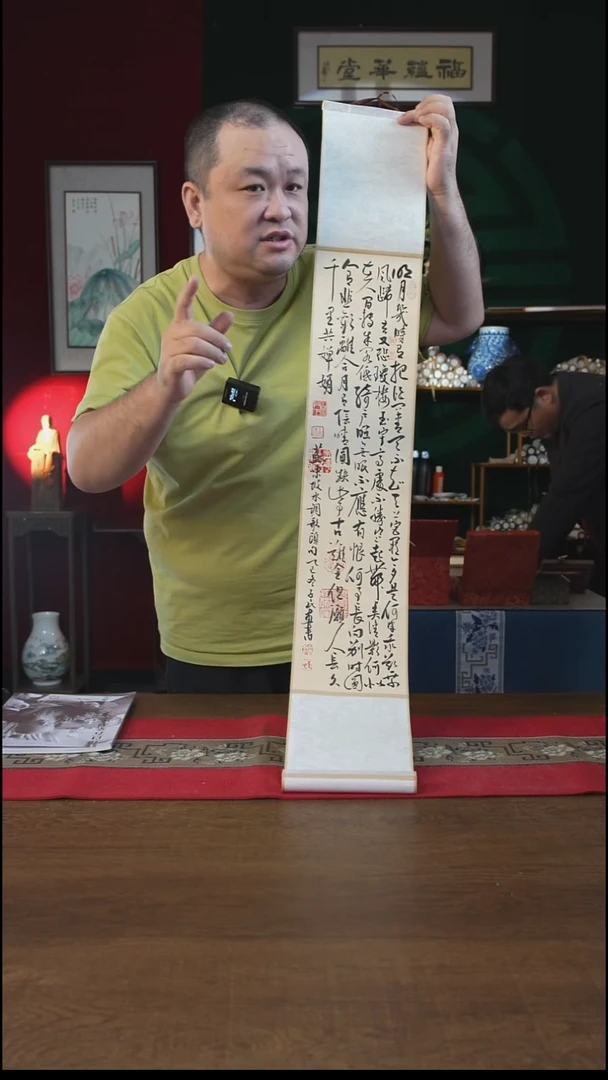 福蘊華堂
明月幾時有把酒問青天不知天上宮闕今夕是何年我欲乘
風歸去又恐瓊樓玉宇高處不勝寒起舞弄清影何似
在人間轉朱閣低綺戶照無眠不應有恨何事長向別時圓
人有悲歡離合月有陰晴圓缺此事古難全但願人長久
千里共嬋娟
蘇東坡水調歌頭句乙巳冬